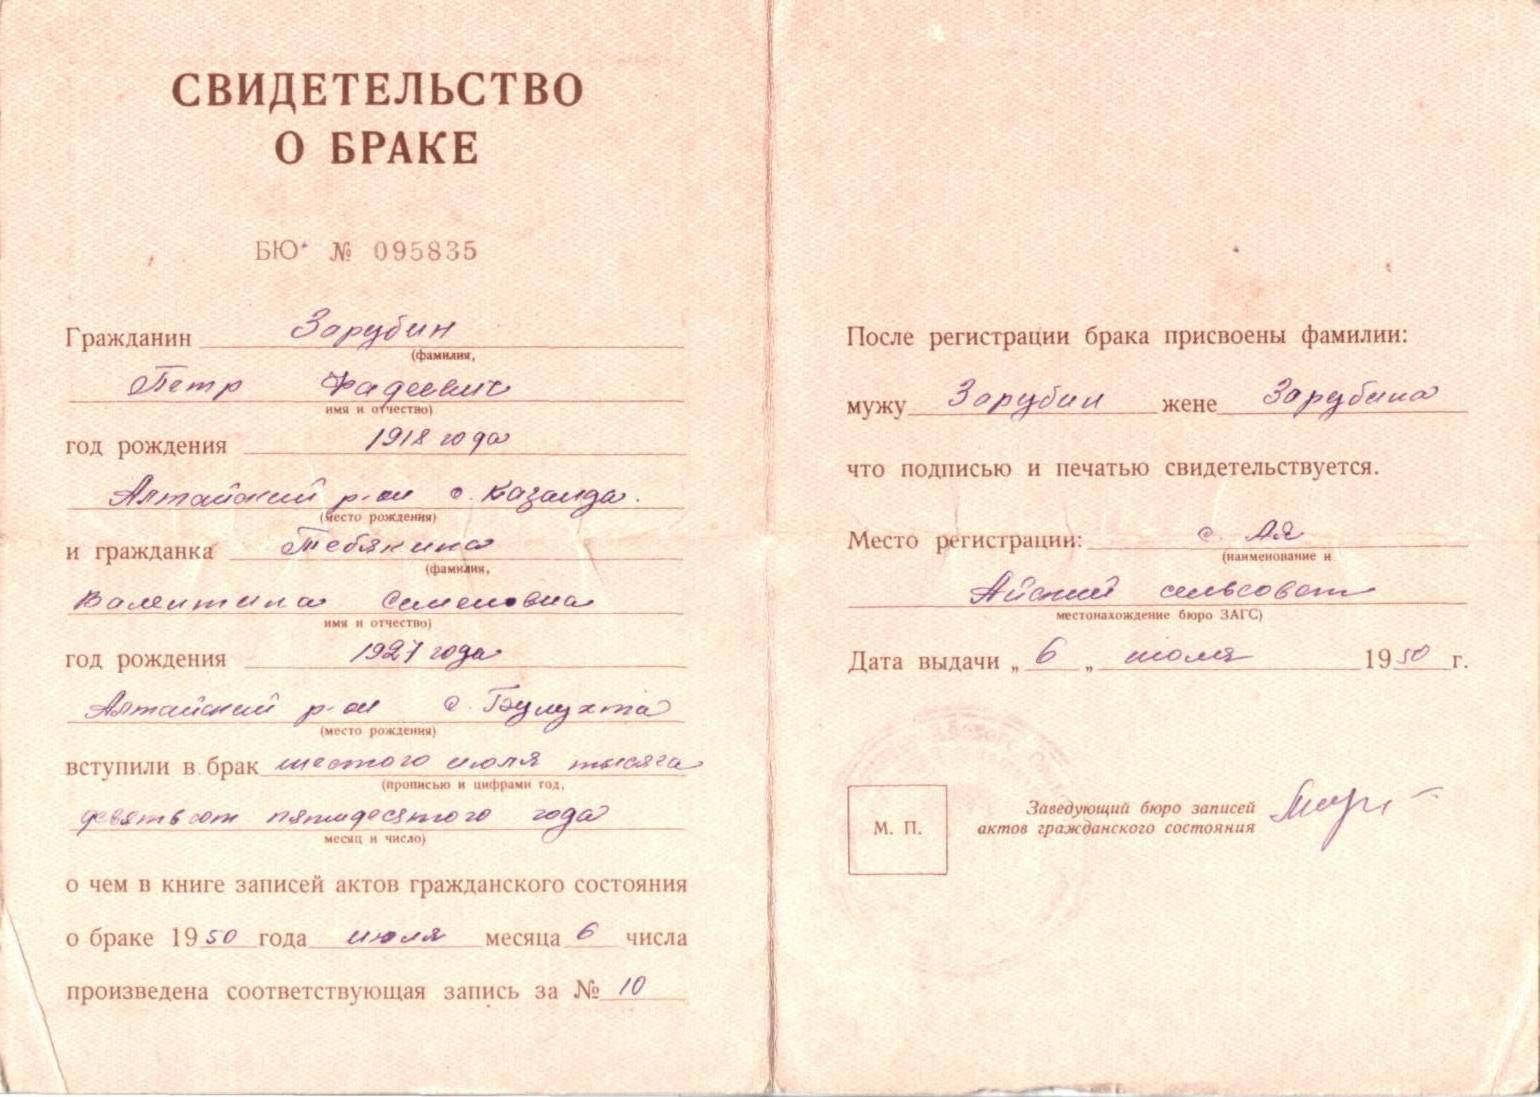 СВИДЕТЕЛЬСТВО
О БРАКЕ
БЮ № 095835
Гражданин Зарубин
(фамилия,
Петр Фадеевич
имя и отчество)
год рождения 1918 года
Алтайский р-он с. Казанда.
(место рождения)
и гражданка Тебякина
(фамилия,
Валентина Семеновна
имя и отчество)
год рождения 1927 года
Алтайский р-он с. Булухта
(место рождения)
вступили в брак шестого июля тысяча
(прописью и цифрами год,
девятьсот пятидесятого года
месяц и число)
о чем в книге записей актов гражданского состояния
о браке 1950 года июля месяца 6 числа
произведена соответствующая запись за № 10
После регистрации брака присвоены фамилии:
мужу Зарубин жене Зарубина
что подписью и печатью свидетельствуется.
Место регистрации: с. Ая
(наименование и
Айский сельсовет
местонахождение бюро ЗАГС)
Дата выдачи „ 6 „ июля 1950 г.
М. П.
Заведующий бюро записей
актов гражданского состояния